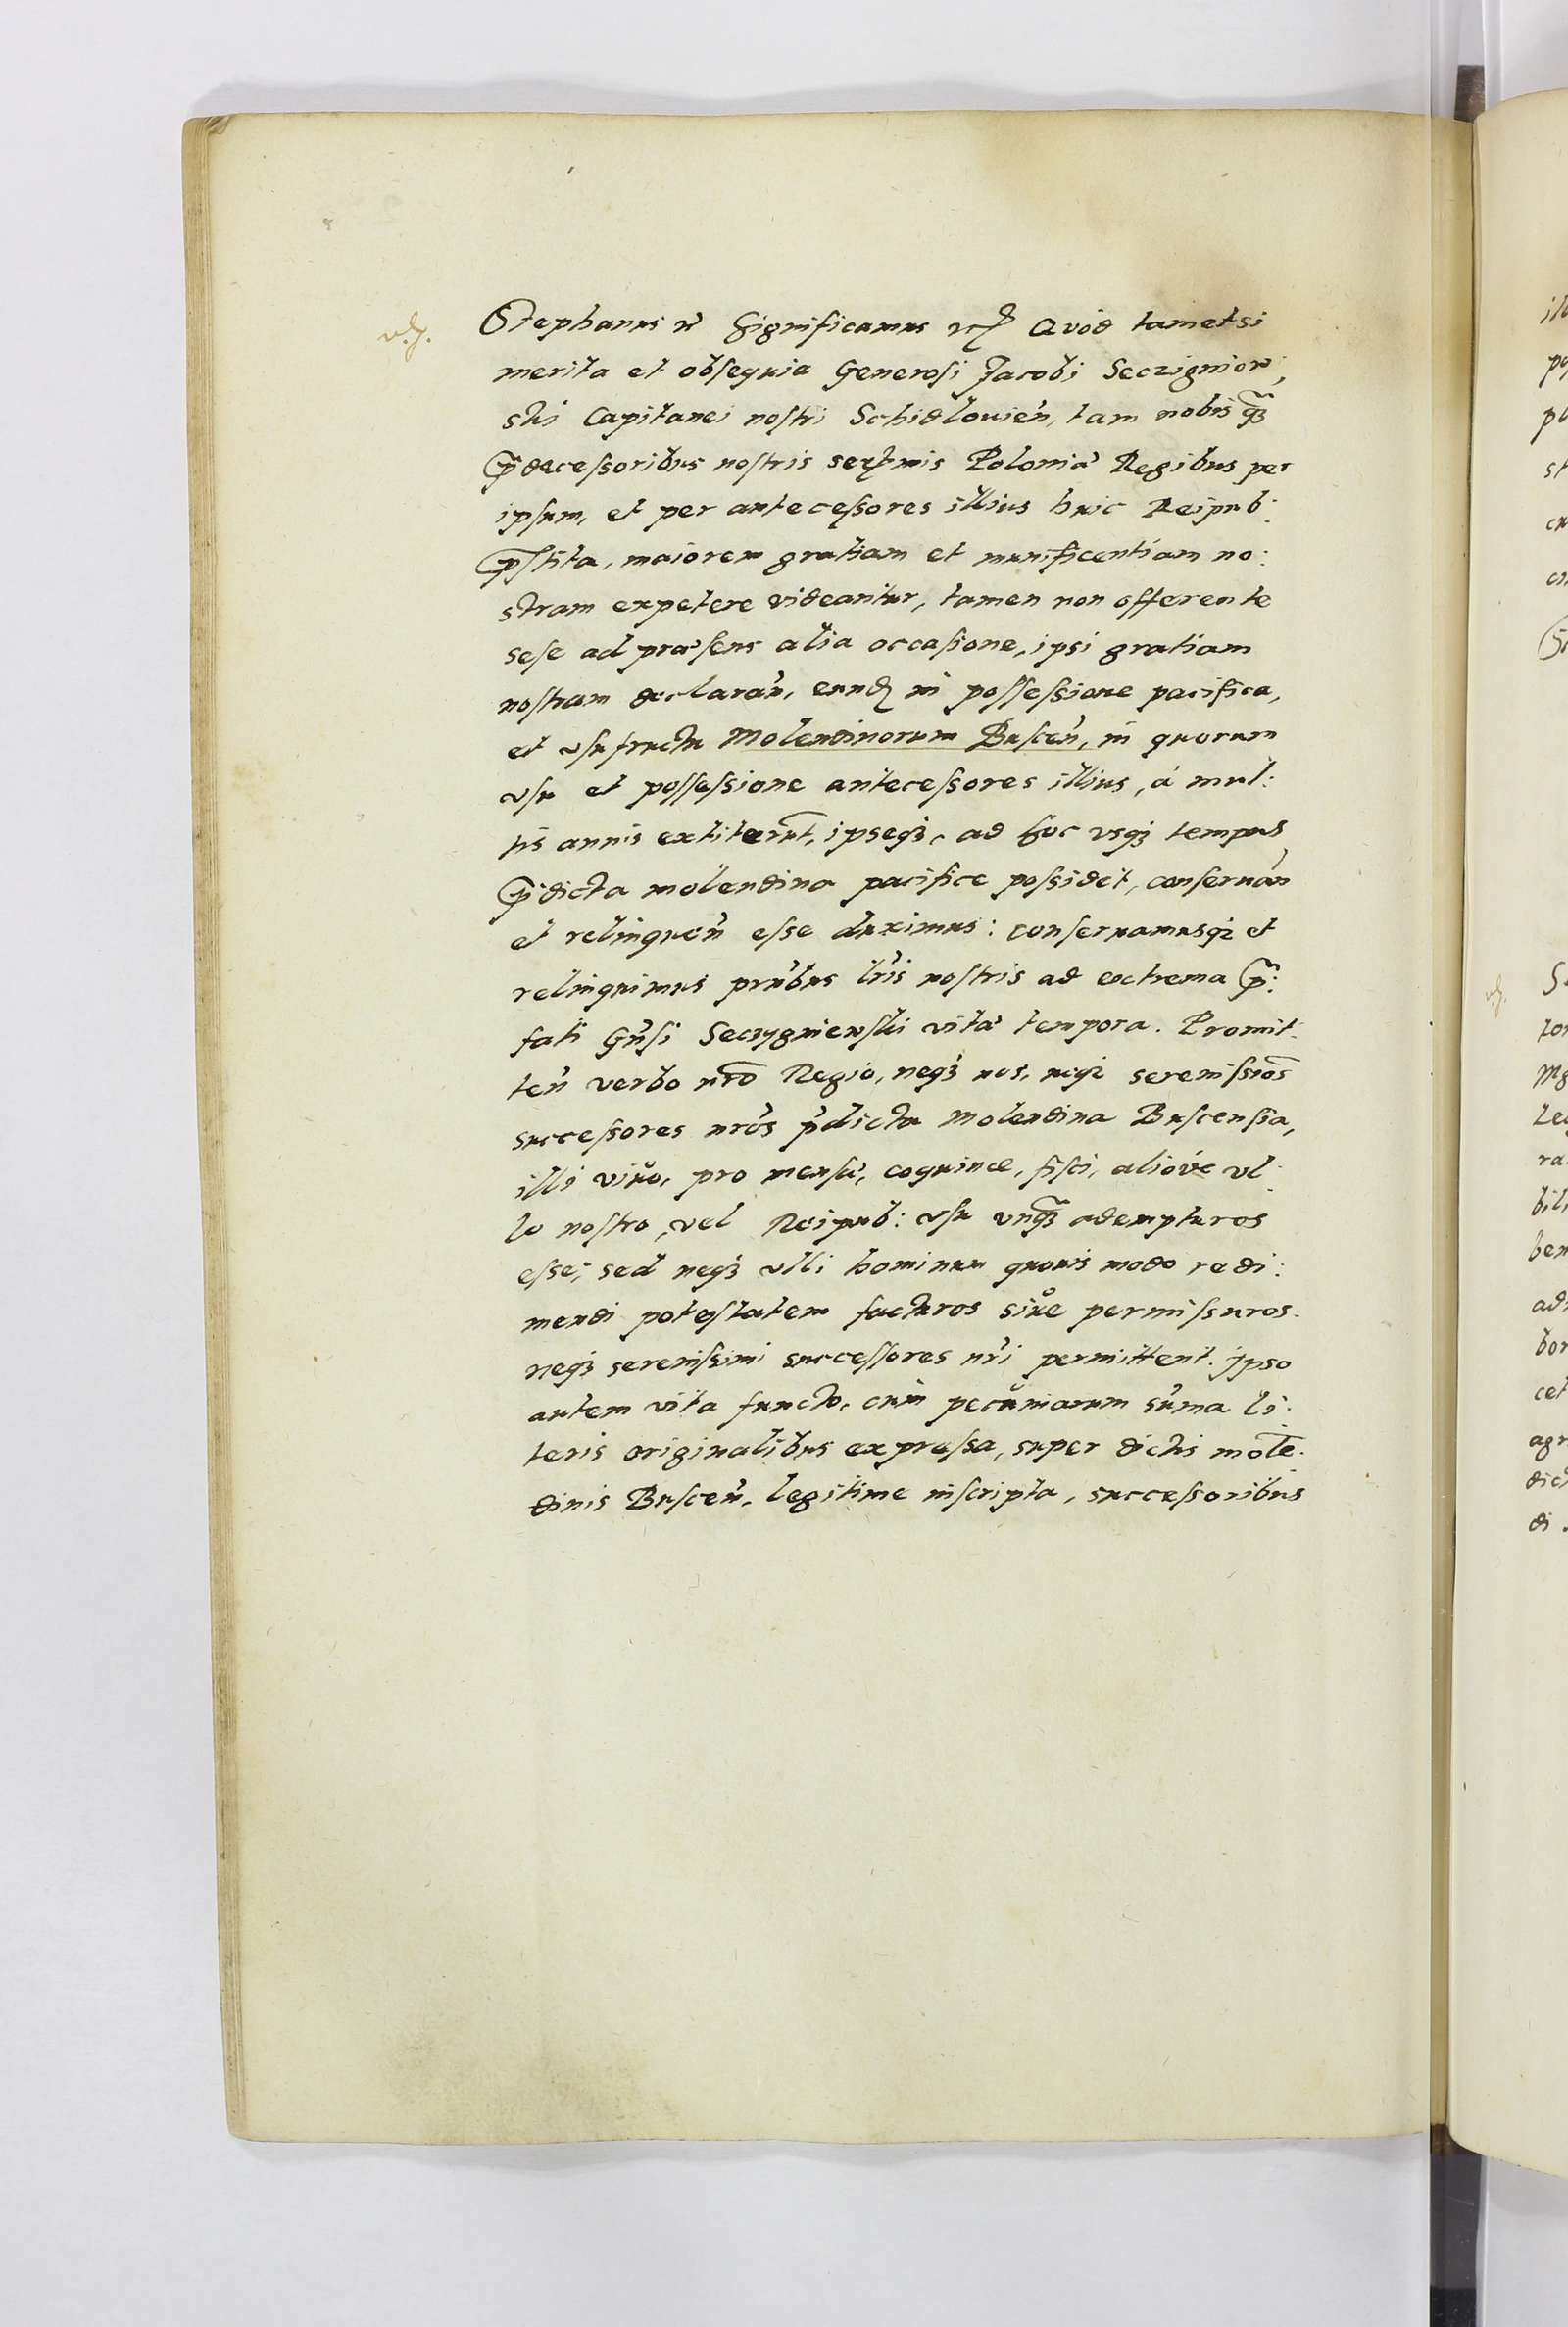 Stephanus etc Significamus etc Quod tametsi
merita et obsequia Generosi Jacobi Seczigniow,
ski Capitanei nostri Schidlouien̄, tam nobis q̃ꝫ
p̃decessoribus nostris serẽmis Poloniæ Regibus per
ipsum, et per antecessores illius huic Reipub:
p̃stita, maiorem gratiam et munificentiam no:
stram expetere videantur, tamen non offerente
sese ad præsens alia occasione, ipsi gratiam
nostram declaran̄, eundē in possessione pacifica,
et vsufructu Molendinorum Buscen̄, in quorum
vsu et possessione antecessores illius, à mul:
tis annis extiterũt, ipseqꝫ, ad hoc vsqꝫ tempus
p̃dicta molendina pacifice possidet, conseruan̄
et relinquen̄ esse duximus: conseruamusqꝫ et
relinquimus pn̄tibus lr̄is nostris ad extrema p̃:
fati Gn̄si Seczygnienski vitæ tempora. Promit:
ten̄ verbo nr̄o Regio, neqꝫ nos, neqꝫ serenissiōs
successores nr̄os p̄dicta Molendina Buscensia,
illi viuo, pro mensæ, coquinæ, fisci, alióve vl:
lo nostro, vel Reipub: vsu vnq̃ꝫ adempturos
esse; sed neqꝫ vlli hominum quouis modo redi:
mendi potestatem facturos siue permissuros.
neqꝫ serenissimi successores nr̄i permittent. Ipso
autem vita functo, cum pecuniarum sum̄a li:
teris originalibus expressa, super dictis molē:
dinis Buscen̄, legitime inscripta, successoribus